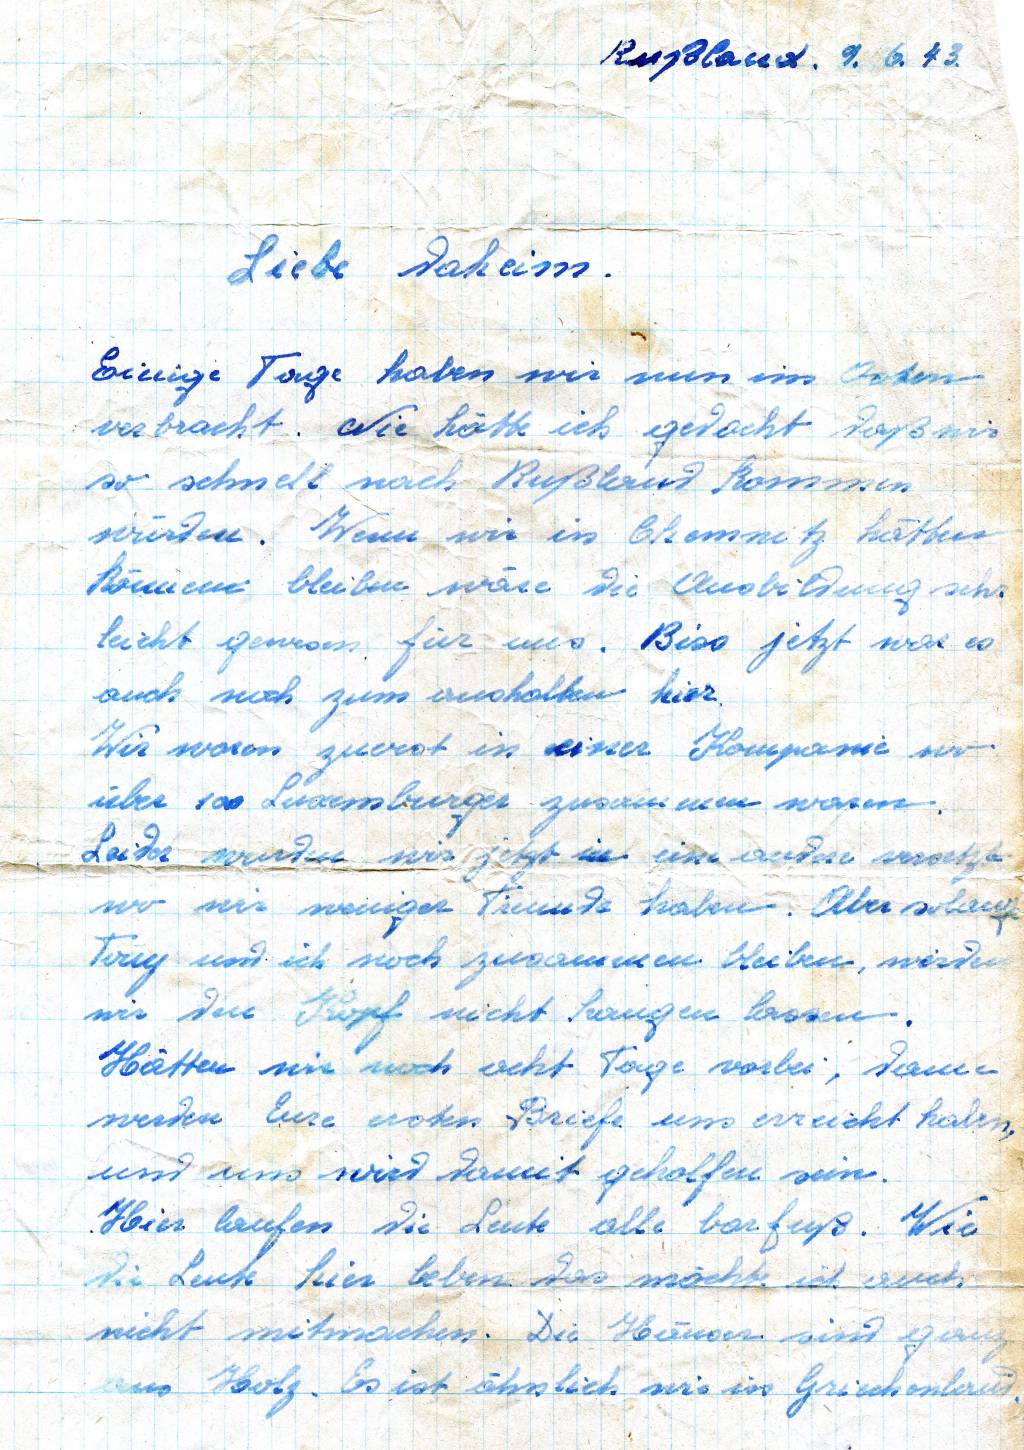 Rußland. 9. 6. 43.
Liebe daheim.
Einige Tage haben wir nun im Osten
verbracht. Nie hätte ich gedacht daß wir
so schnell nach Rußland kommen
würden. Wenn wir in Chemnitz hätten
können bleiben wäre die Ausbildung sehr
leicht gewesen für uns. Biss jetzt war es
auch noch zum aushalten hier.
Wir waren zuerst in einer Kompanie wo
über 100 Luxemburger zusammen waren.
Leider wurden wir jetzt in eine andere versetzt
wo wir weniger Freunde haben. Aber solang
Tony und ich noch zusammen bleiben, werden
wir den Kopf nicht hangen lassen.
Hätten wir noch acht Tage vorbei, dann
werden Eure ersten Briefe uns erreicht haben,
und uns wird damit geholfen sein.
Hier laufen die Leute alle barfuß. Wie
die Leute hier leben das möchte ich auch
nicht mitmachen. Die Häuser sind ganz
aus Holz. Es ist ähnlich wie in Griechenland.